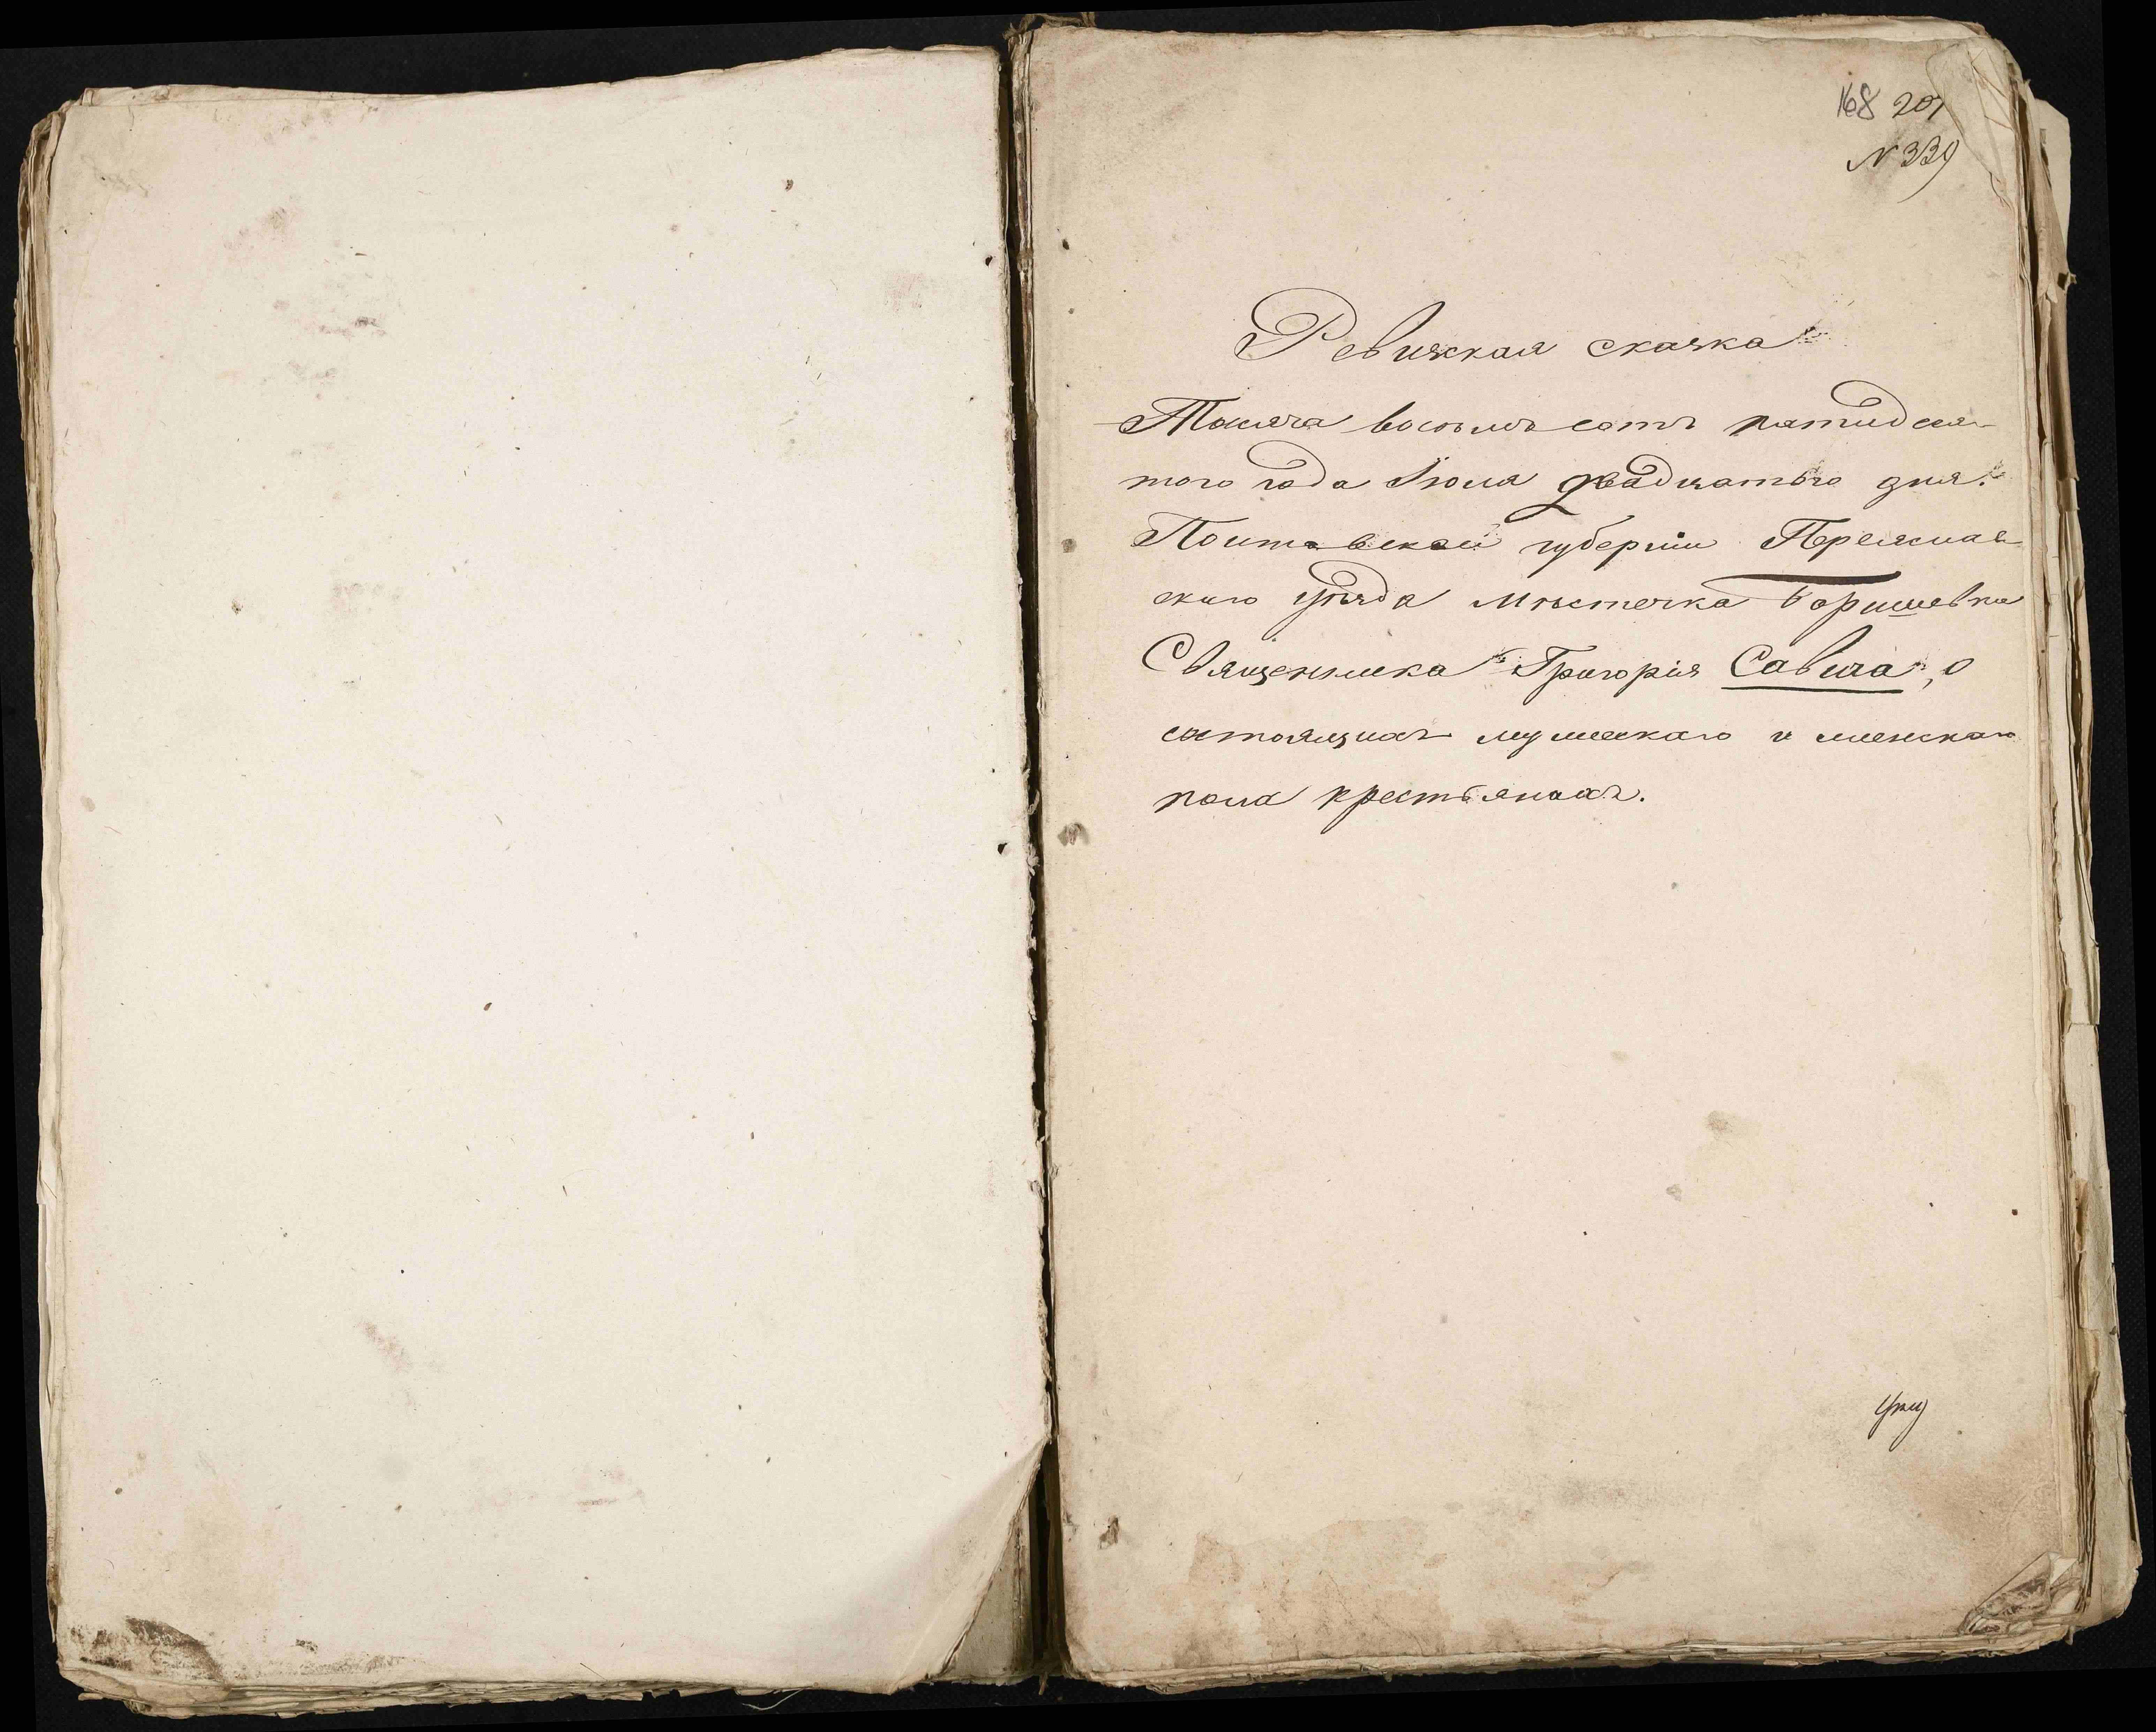 168 201
N 339
Ревижская скаска
Тысяча восемь сотъ пятидеся-
того года Іюля двадцатого дня.
Полтавской губерніи Переяслав
скаго уѣзда Мѣстечка Боришевки
Священника Григорія Савича, о
состоящихъ мужескаго и женскаго
пола крестьянахъ.